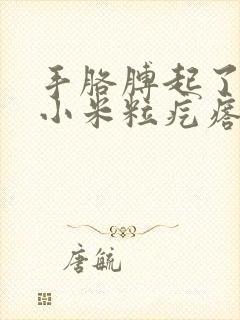 手胳膊起了
小米粒疙瘩
唐毓